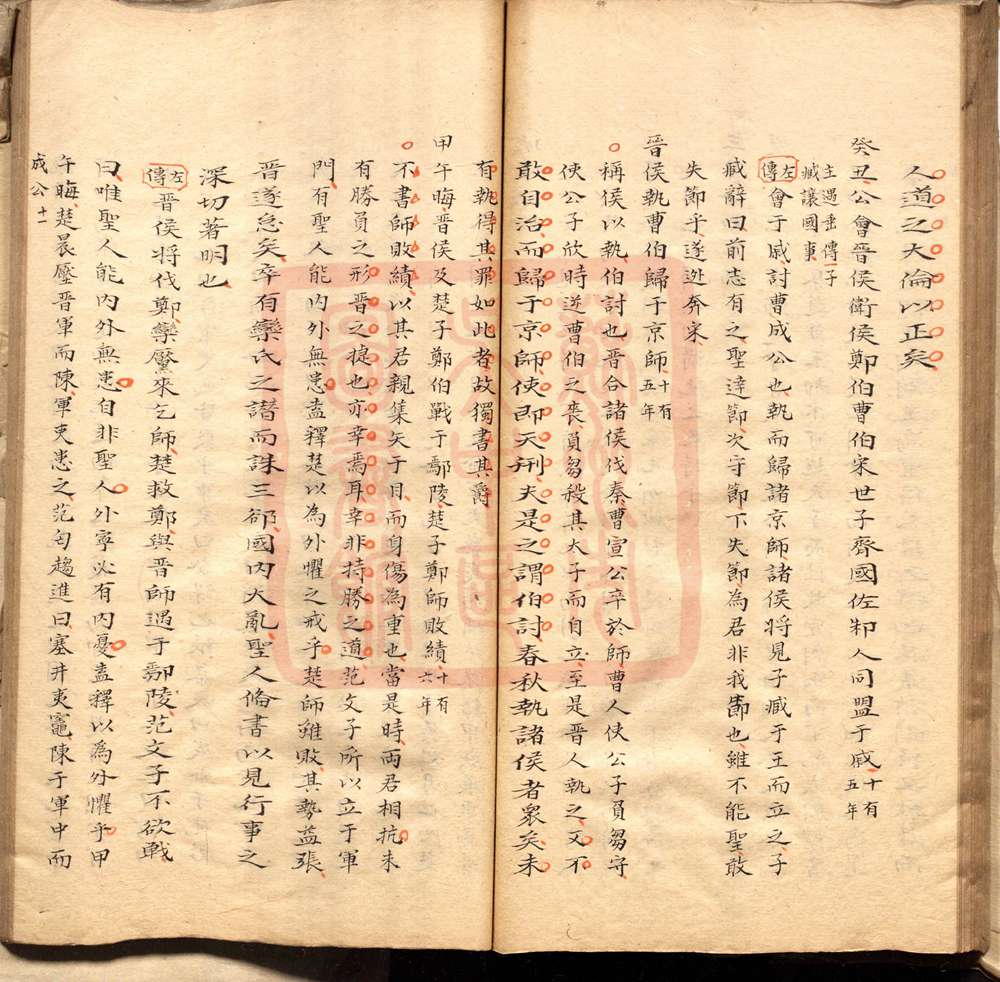 人道之大倫以正矣
癸丑公會晉侯衛侯鄭伯曹伯宋世子齊國佐邾人同盟于戚十有五年
主過垂傳子臧讓國事
左傳會于戚討曹成公也執而歸諸京師諸侯將見子臧于王而立之子
臧辭曰前志有之聖達節次守節下失節為君非我節也雖不能聖敢
失節乎遂逃奔宋
晉侯執曹伯歸于京師十有五年
稱侯以執伯討也晉合諸侯伐秦曹宣公卒於師曹人使公子負芻守
使公子欣時逆曹伯之喪負芻殺其大子而自立至是晉人執之又不
敢自治而歸于京師使即天刑夫是之謂伯討春秋執諸侯者衆矣未
有執得其罪如此者故獨書其爵
甲午晦晉侯及楚子鄭伯戰于鄢陵楚子鄭師敗績十有六年
不書師敗績以其君親集矢于目而身傷為重也當是時兩君相抗未
有勝負之形晉之捷也亦幸焉耳幸非持勝之道范文子所以立于軍
門有聖人能內外無患盍釋楚以為外懼之戒乎楚師雖敗其勢益張
晉遂怠矣卒有欒氏之譖而誅三郤國內大亂聖人脩書以見行事之
深切著明也
左傳晉侯將伐鄭欒黡來乞師楚救鄭與晉師遇于鄢陵范文子不欲戰
曰唯聖人能內外無患自非聖人外寧必有內憂盍釋以為外懼乎甲
午晦楚晨壓晉軍而陳軍吏患之范匄趨進曰塞井夷竈陳于軍中而
成公十一